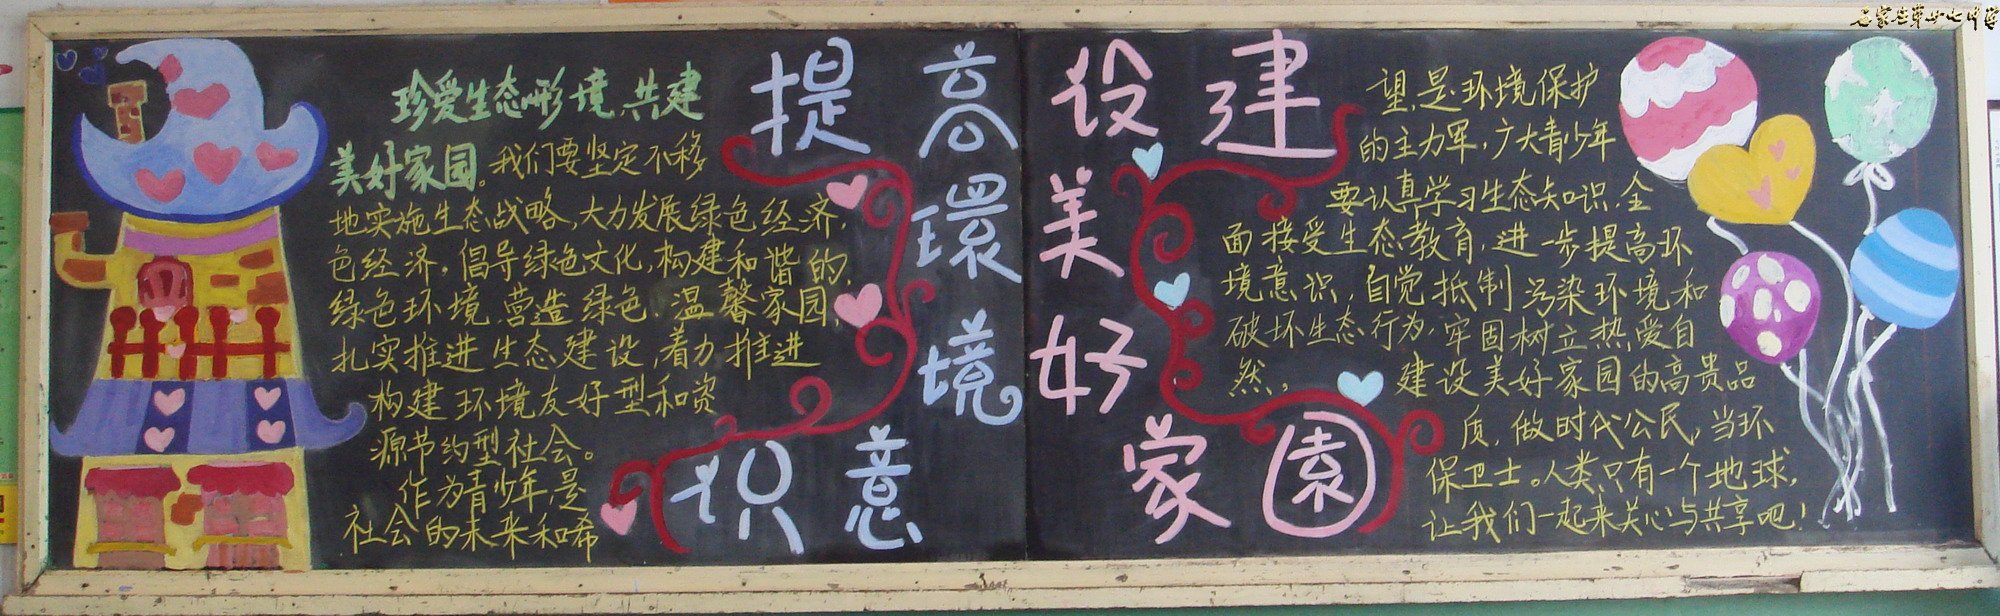 石家庄第廿七中学
珍爱生态环境,共建
美好家园。我们要坚定不移
地实施生态战略,大力发展绿色经济,
色经济,倡导绿色文化,构建和谐的,
绿色环境,营造绿色.温馨家园,
扎实推进生态建设,着力推进
构建环境友好型和资
源节约型社会。
作为青少年,是
社会的未来和希
提高環境
识意
设建
美好
家园
望,是环境保护
的主力军,广大青少年
要认真学习生态知识.全
面接受生态教育,进一步提高环
境意识,自觉抵制污染环境和
破坏生态行为,牢固树立热爱自
然。建设美好家园的高贵品
质,做时代公民,当环
保卫士。人类只有一个地球,
让我们一起来关心与共享吧!